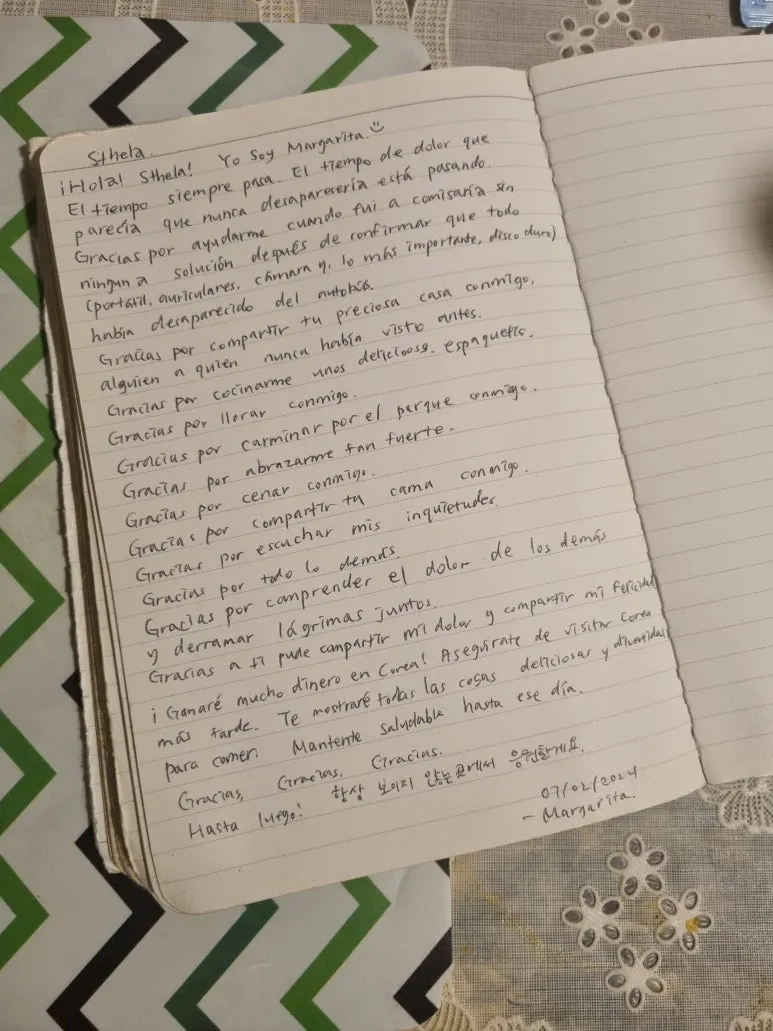 Sthela.
¡Hola! Sthela! Yo Soy Margarita. ☺
El tiempo siempre pasa. El tiempo de dolor que
parecía que nunca desaparecería está pasando.
Gracias por ayudarme cuando fui a comisaría sin
ninguna solución después de confirmar que todo
(portátil, auriculares, cámara y, lo más importante, disco duro)
había desaparecido del autobús.
Gracias por compartir tu preciosa casa conmigo,
alguien a quien nunca había visto antes.
Gracias por cocinarme unos deliciosos. espaguetis.
Gracias por llorar conmigo.
Gracias por carminar por el parque conmigo.
Gracias por abrazarme tan fuerte.
Gracias por cenar conmigo.
Gracias por compartir tu cama conmigo.
Gracias por escuchar mis inquietudes.
Gracias por todo lo demás
Gracias por comprender el dolor de los demás
y derramar lágrimas juntos.
Gracias a ti pude compartir mi dolor y compartir mi felicidad
¡Ganaré mucho dinero en Corea! Asegúrate de visitar Corea
más tarde. Te mostraré todas las cosas deliciosas y divertidas
para comer. Mantente saludable hasta ese día.
Gracias, Gracias, Gracias.
Hasta luego! 항상 보이지 않는 곳에서 응원할게요.
07/02/2024
- Margarita.